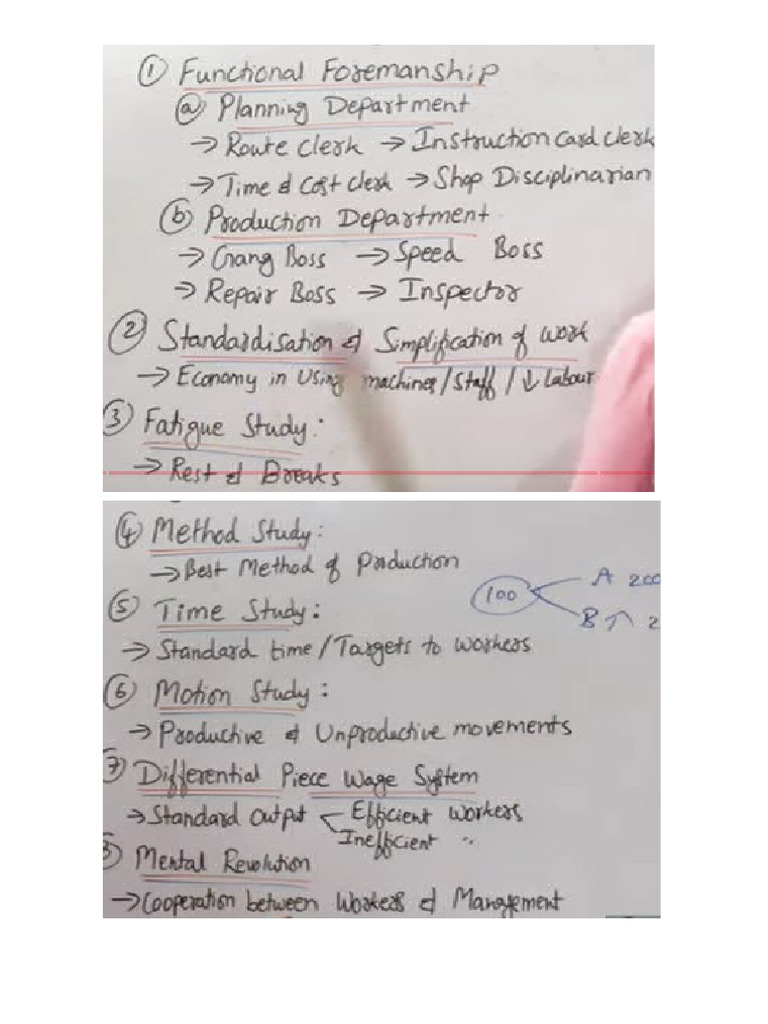 ① Functional Foremanship
ⓐ Planning Department
→ Route Clerk → Instruction Card Clerk
→ Time & Cost Clerk → Shop Disciplinarian
ⓑ Production Department
→ Gang Boss → Speed Boss
→ Repair Boss → Inspector
② Standardisation & Simplification of work
→ Economy in Using machines/Staff/↓ Labour
③ Fatigue Study:
→ Rest & Breaks
④ Method Study:
→ Best Method of Production
100 A 200
B ↑ 2
⑤ Time Study:
→ Standard time/Targets to workers
⑥ Motion Study:
→ Productive & Unproductive movements
⑦ Differential Piece Wage System
→ Standard Output Efficient Workers
Inefficient "
Mental Revolution
→ Cooperation between Workers & Management